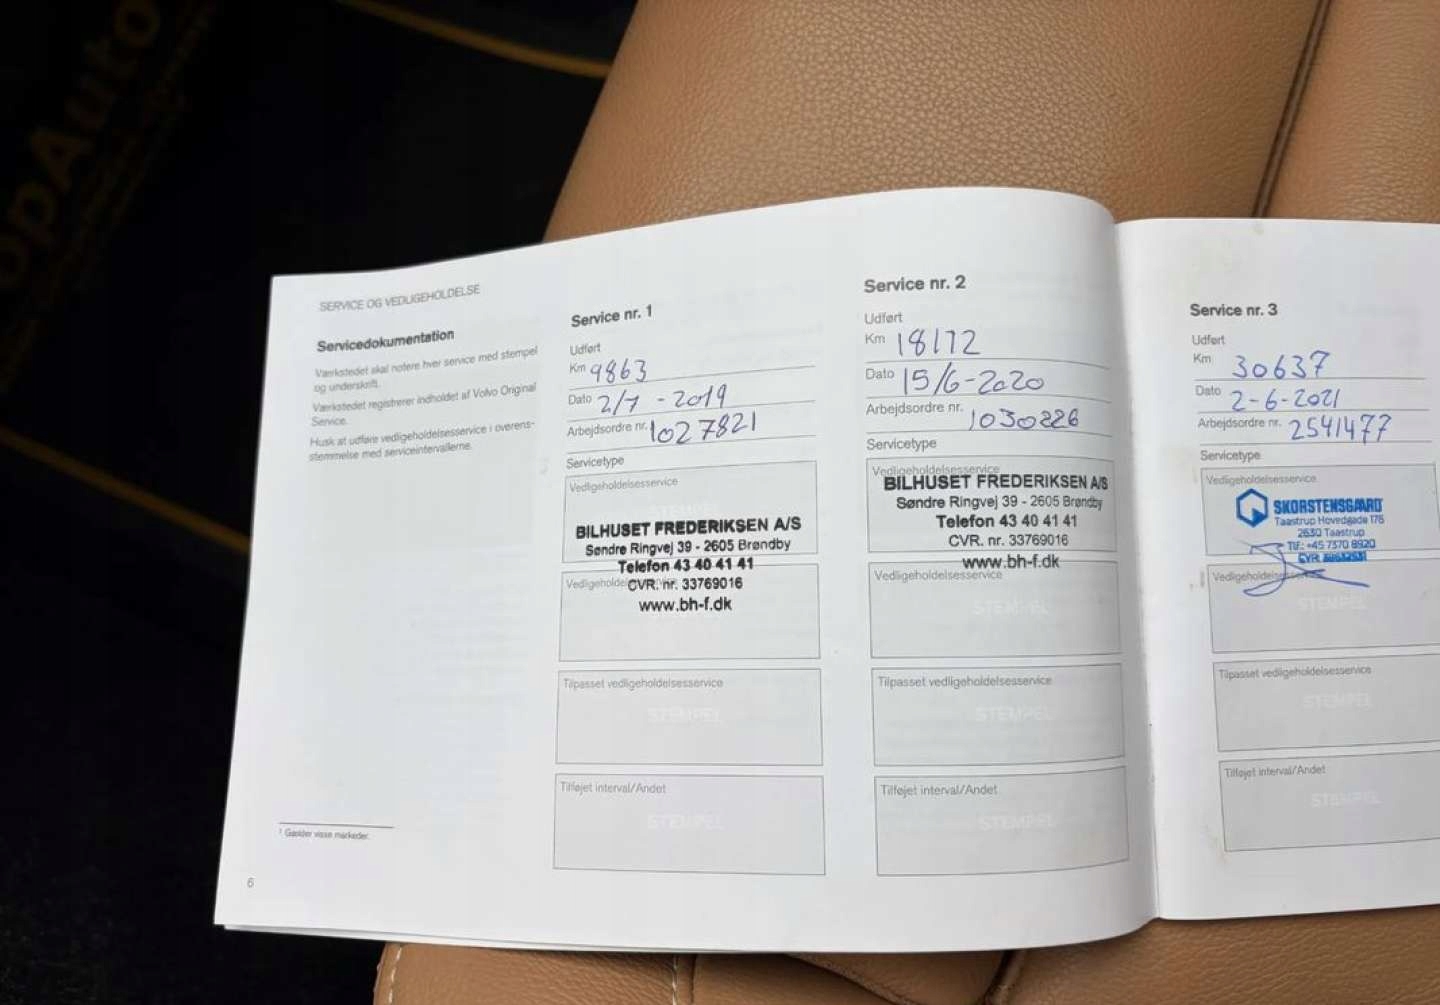 opAuto
SERVICE OG VEDLIGEHOLDELSE
Servicedokumentation
Værkstedet skal notere hver service med stempel
og underskrift.
Værkstedet registrerer indholdet af Volvo Original
Service.
Husk at udføre vedligeholdelsesservice i overens-
stemmelse med serviceintervallerne.
¹ Gælder visse markeder.
6
Service nr. 1
Udført
Km 9863
Dato 2/7 - 2019
Arbejdsordre nr. 1027821
Servicetype
Vedligeholdelsesservice
BILHUSET FREDERIKSEN A/S
Søndre Ringvej 39 - 2605 Brøndby
Telefon 43 40 41 41
CVR. nr. 33769016
www.bh-f.dk
Tilpasset vedligeholdelsesservice
STEMPEL
Tilføjet interval/Andet
STEMPEL
Service nr. 2
Udført
Km 18172
Dato 15/6-2020
Arbejdsordre nr. 1030226
Servicetype
Vedligeholdelsesservice
BILHUSET FREDERIKSEN A/S
Søndre Ringvej 39 - 2605 Brøndby
Telefon 43 40 41 41
CVR. nr. 33769016
www.bh-f.dk
Vedligeholdelsesservice
STEMPEL
Tilpasset vedligeholdelsesservice
STEMPEL
Tilføjet interval/Andet
STEMPEL
Service nr. 3
Udført
Km 30637
Dato 2-6-2021
Arbejdsordre nr. 2541477
Servicetype
Vedligeholdelsesservice
SKORSTENSGAARD
Taastrup Hovedgade 176
2630 Taastrup
Tlf.: +45 7370 8920
CVR
STEMPEL
Tilpasset vedligeholdelsesservice
STEMPEL
Tilføjet interval/Andet
STEMPEL